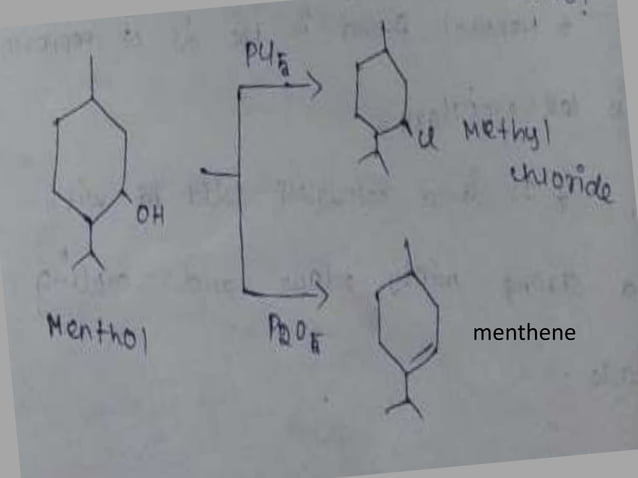 PCl5
Cl Methyl
chloride
OH
Menthol
P2O5
menthene